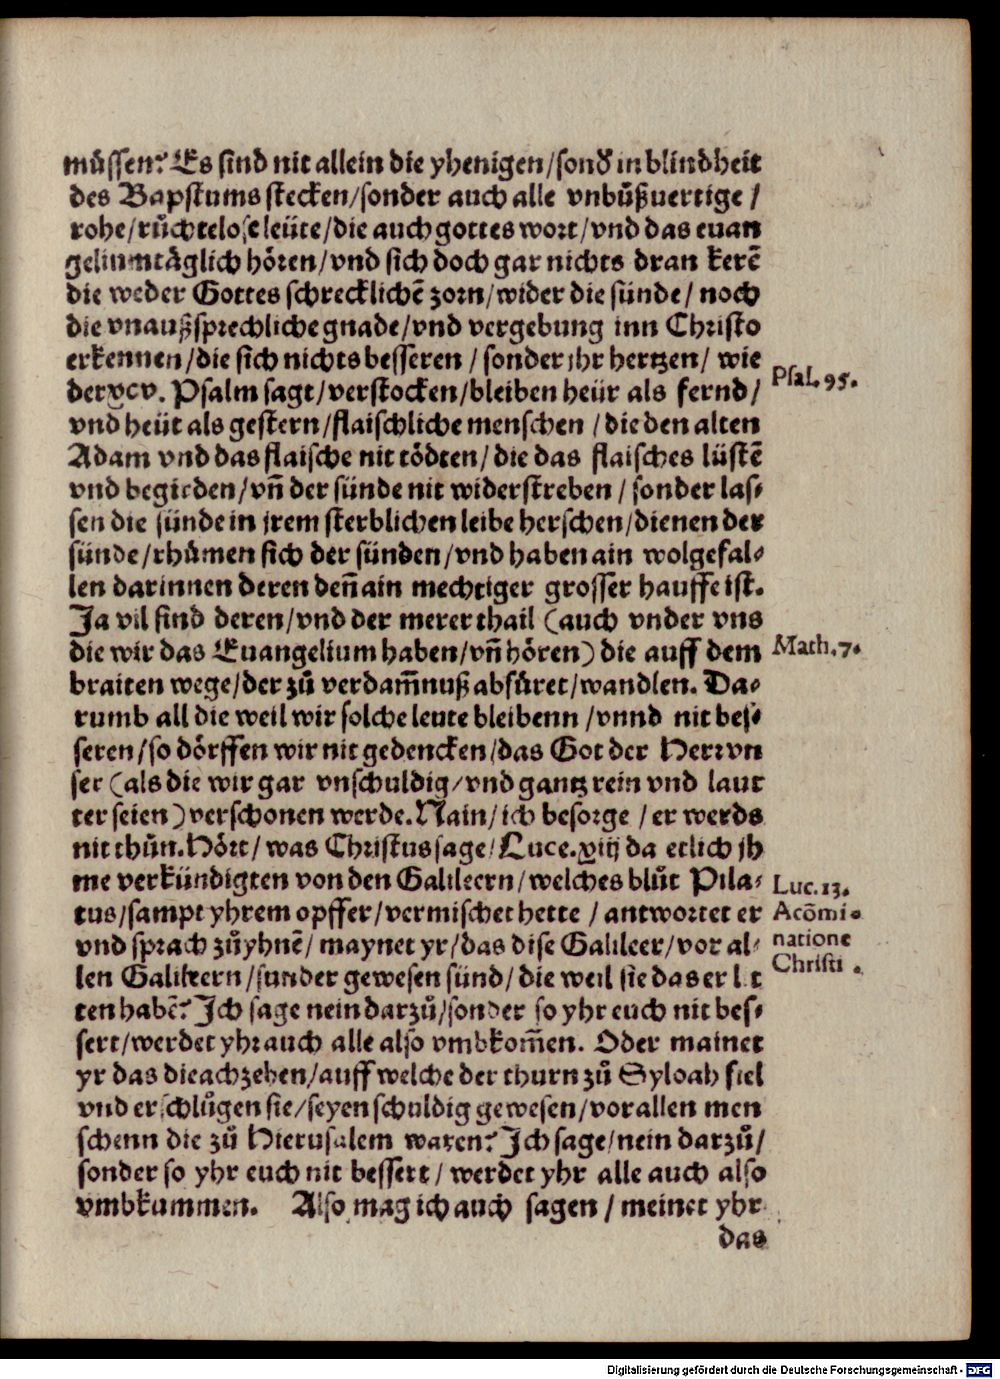 müssen? Es sind nit allein die yhenigen/so nd in blindheit
des Bapstums stecken/sonder auch alle vnbůßuertige /
rohe/růchtelose leüte/die auch gottes wort/vnd das euan
gelium täglich hören/vnd sich doch gar nichts dran kerē
die weder Gottes schrecklichē zorn/wider die sünde/ noch
die vnaußsprechliche gnade/vnd vergebung inn Christo
erkennen/die sich nichts besseren / sonder jhr hertzen/ wie
der xcv. Psalm sagt/verstocken/bleiben heür als fernd/
Psal. 95.
vnd heüt als gestern/flaischliche menschen / die den alten
Adam vnd das flaische nit tödten/ die das flaisches lüstē
vnd begirden/vn̄ der sünde nit widerstreben / sonder las-
sen die sünde in jrem sterblichen leibe herschen/dienen der
sünde/rhůmen sich der sünden/vnd haben ain wolgefal-
len darinnen deren den̄ ain mechtiger grosser hauffe ist.
Ja vil sind deren/vnd der merer thail (auch vnder vns
die wir das Euangelium haben/vn̄ hören) die auff dem
Math. 7.
braiten wege/der zů verdam̄nuß absüret/wandlen. Da-
rumb all die weil wir solche leute bleibenn /vnnd nit bes-
seren/so dörffen wir nit gedencken/das Got der Herr vn
ser (als die wir gar vnschuldig/vnd gantz rein vnd laut
ter seien) verschonen werde. Nain/ich besorge / er werds
nit thůn. Hört/ was Christus sage/ Luce. xiij da etlich jh
me verkündigten von den Galileern/welches blůt Pila-
Luc. 13.
tus/sampt yhrem opffer/vermischet hette / antwortet er
Acōmi-
vnd sprach zů yhnē/ maynet yr/das dise Galileer/vor al-
natione
len Galileern/sunder gewesen sünd/ die weil sie das er lit
Christi .
ten habē? Ich sage nein darzů/sonder so yhr euch nit bes-
sert/werdet yhr auch alle also vmbkom̄en. Oder mainet
yr das die achzehen/auff welche der thurn zů Syloah fiel
vnd erschlůgen sie/seyen schuldig gewesen/vor allen men
schenn die zů Hierusalem waren? Ich sage/nein darzů/
sonder so yhr euch nit bessert/ werdet yhr alle auch also
vmbkummen. Also mag ich auch sagen / meinet yhr
das
Digitalisierung gefördert durch die Deutsche Forschungsgemeinschaft - DFG